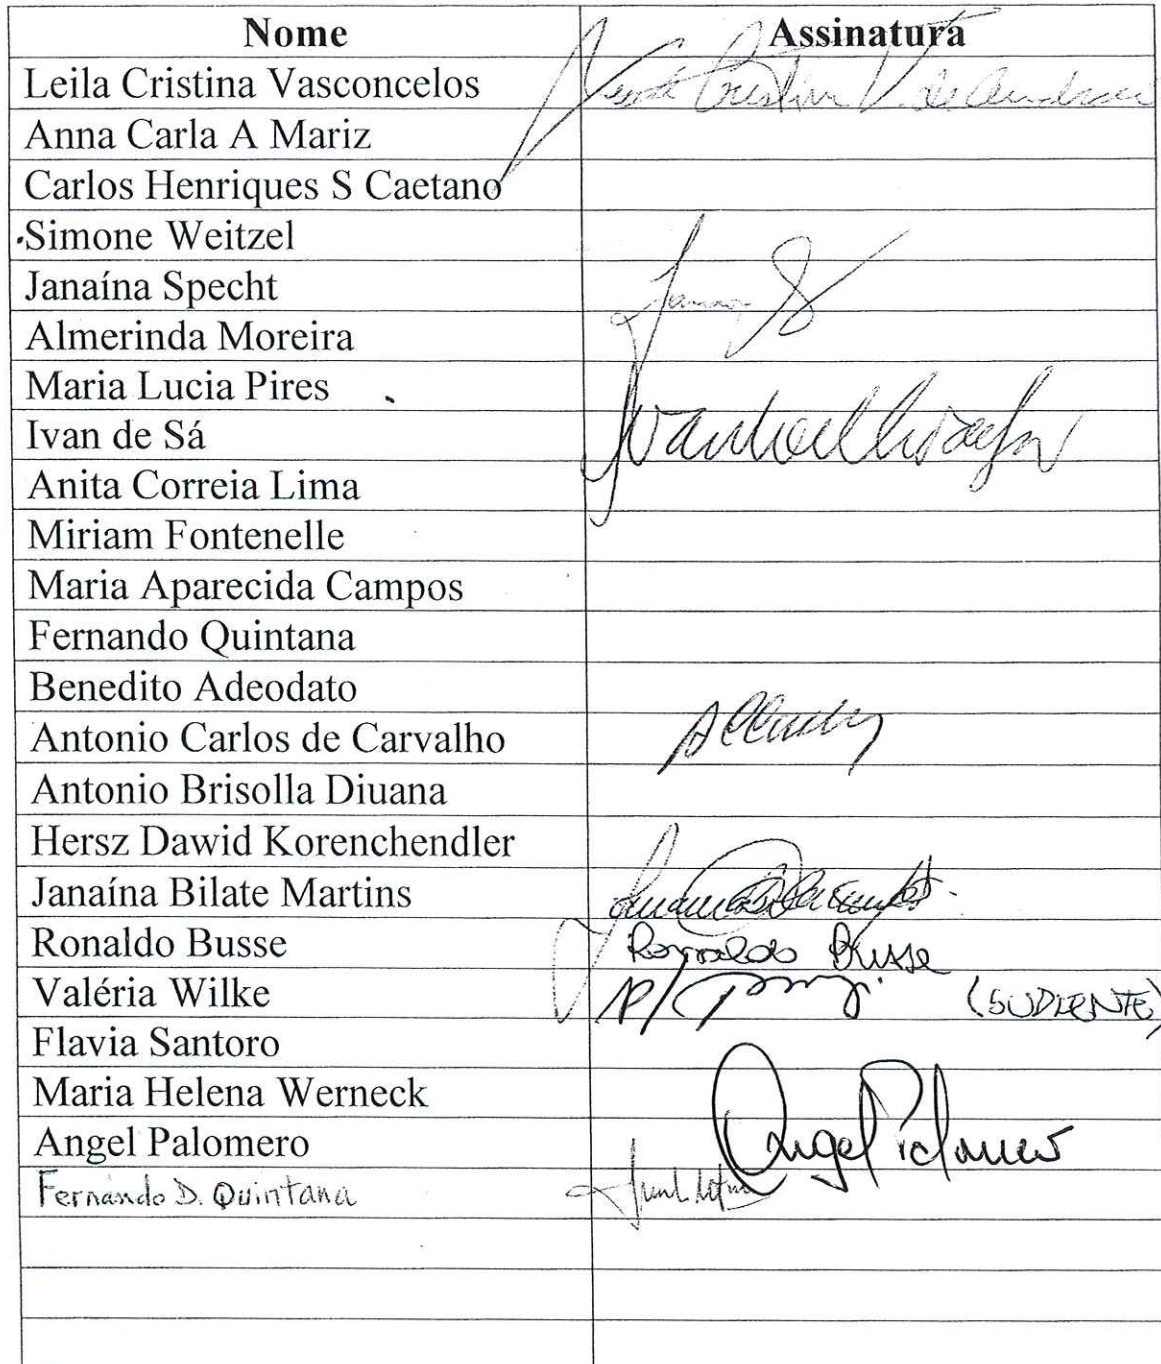 Nome Assinatura
Leila Cristina Vasconcelos Cristina V. de Andrade
Anna Carla A Mariz
Carlos Henriques S Caetano
Simone Weitzel
Janaína Specht
Almerinda Moreira
Maria Lucia Pires
Ivan de Sá
Anita Correia Lima
Miriam Fontenelle
Maria Aparecida Campos
Fernando Quintana
Benedito Adeodato
Antonio Carlos de Carvalho
Antonio Brisolla Diuana
Hersz Dawid Korenchendler
Janaína Bilate Martins
Ronaldo Busse Ronaldo Busse
Valéria Wilke P/ (SUPLENTE)
Flavia Santoro
Maria Helena Werneck
Angel Palomero Angel Palomero
Fernando D. Quintana